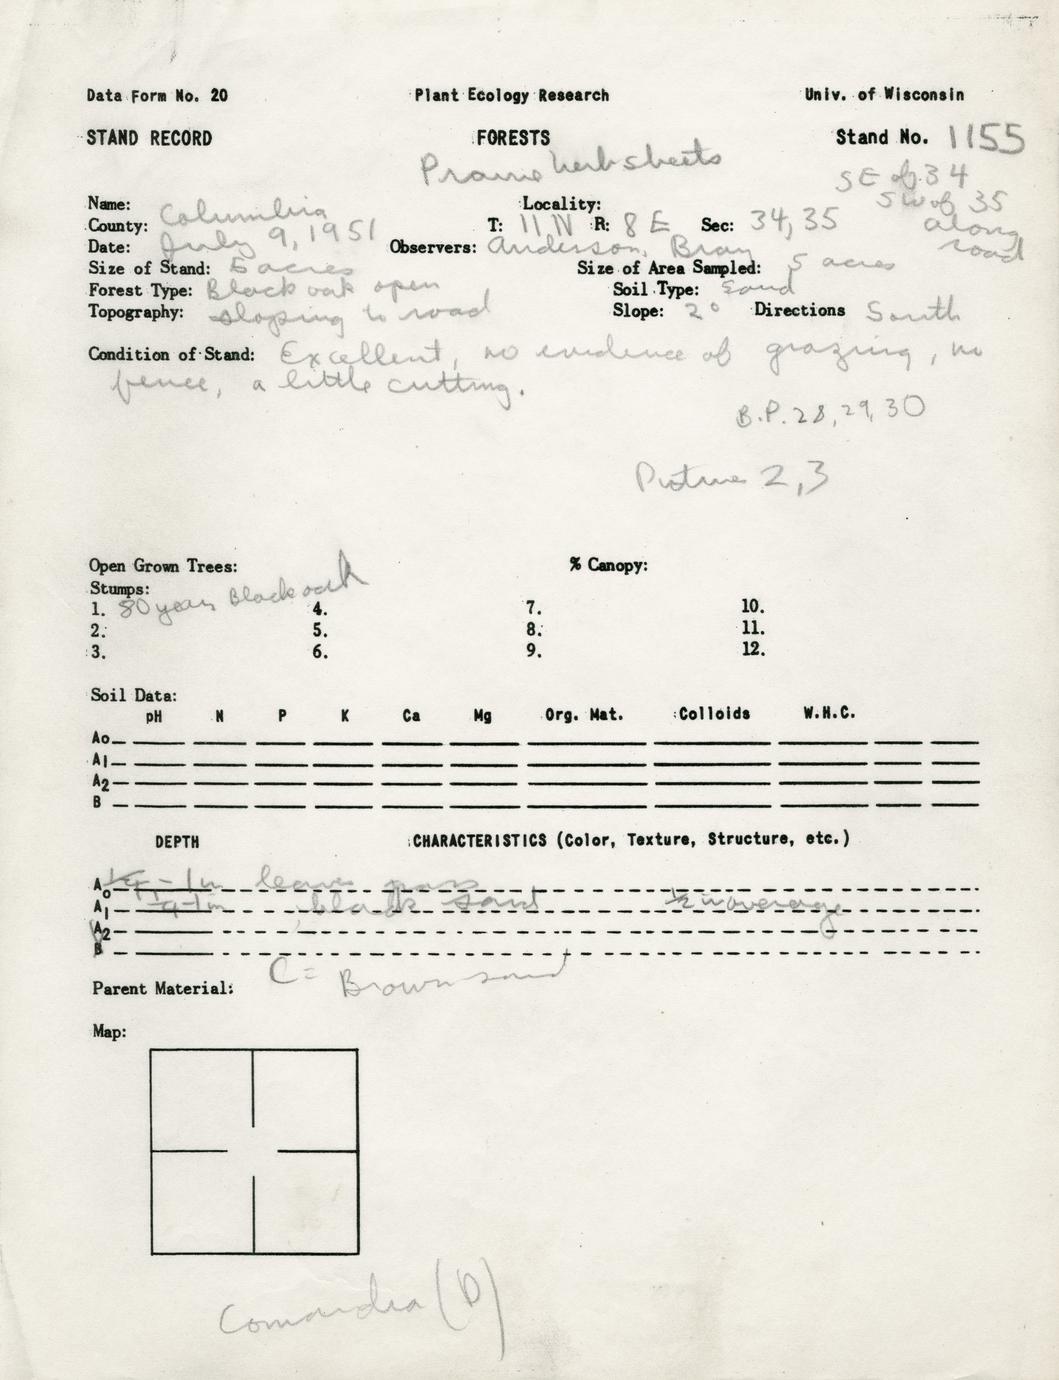 Data Form No. 20 Plant Ecology Research Univ. of Wisconsin
STAND RECORD FORESTS Stand No. 1155
Prairie herb sheets
SE of 34
SW of 35
along
road
Name: Locality:
County: Columbia T: 11N R: 8E Sec: 34, 35
Date: July 9, 1951 Observers: Anderson, Bray
Size of Stand: 5 acres Size of Area Sampled: 5 acres
Forest Type: Black oak open Soil Type: Sand
Topography: sloping to road Slope: 2° Directions South
Condition of Stand: Excellent, no evidence of grazing, no
fence, a little cutting.
B.P. 28, 29, 30
Picture 2, 3
Open Grown Trees: % Canopy:
Stumps:
1. 80 years Black oak 4. 7. 10.
2. 5. 8. 11.
3. 6. 9. 12.
Soil Data:
pH N P K Ca Mg Org. Mat. Colloids W.H.C.
Ao
A1
A2
B
DEPTH CHARACTERISTICS (Color, Texture, Structure, etc.)
Ao 1/4 - 1 in leaves grass
A1 1/4-1 in black sand 1/2 in average
A2
B
C = Brown sand
Parent Material:
Map:
Comandra (D)